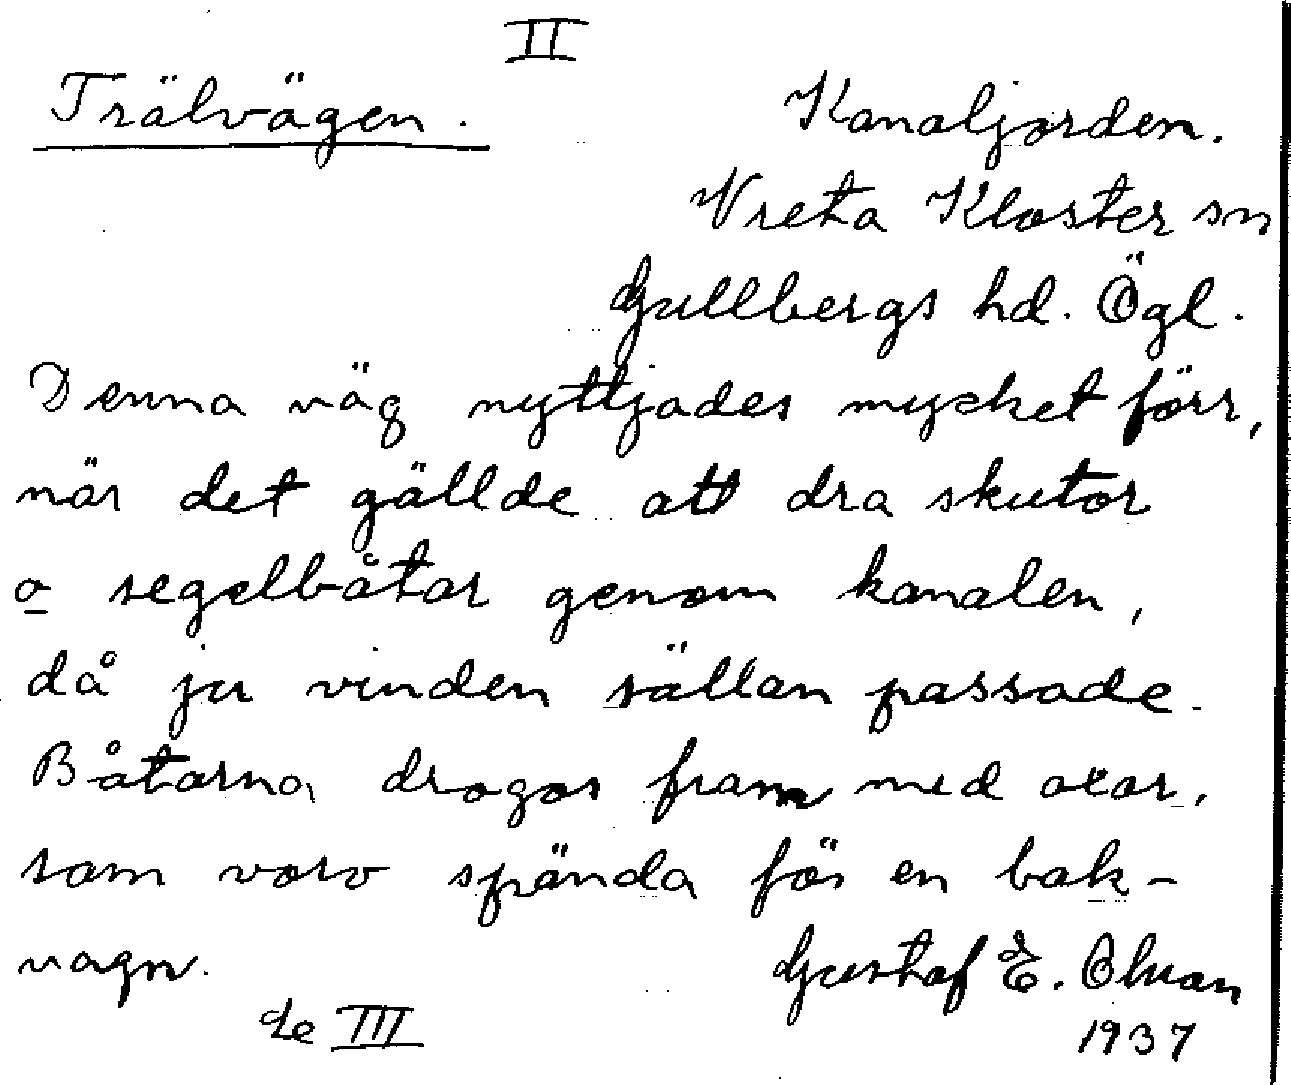 II
Trälvägen.
Kanaljorden.
Vreta Kloster sn
Gullbergs hd. Ögl.
Denna väg nyttjades mycket förr,
när det gällde att dra skutor
o segelbåtar genom kanalen,
då ju vinden sällan passade.
Båtarna drogos fram med oxar,
som voro spända för en bak-
vagn.
Gustaf E. Olsson
Se III
1937